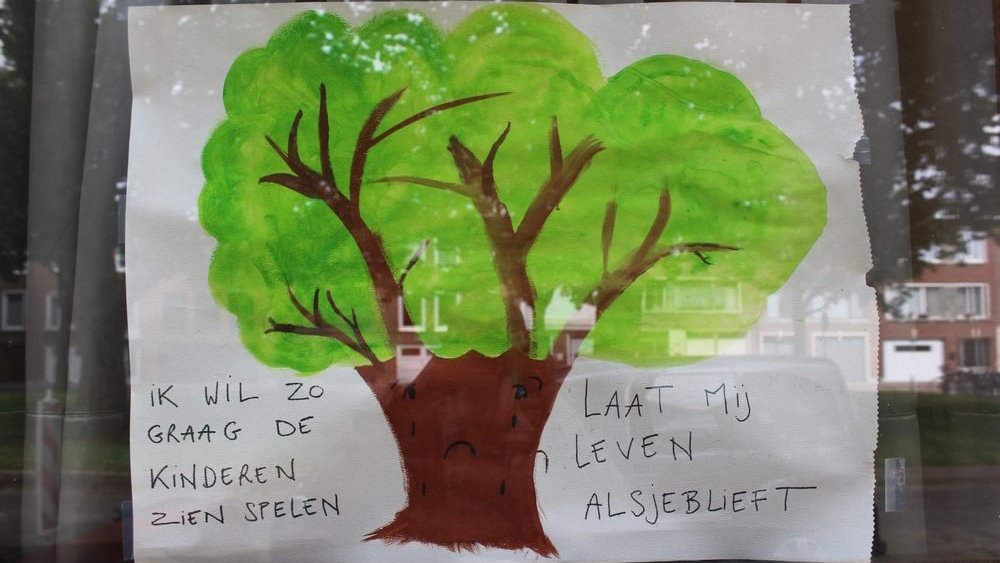 iK WiL ZO
GRAAG DE
KiNDEREN
ZiEN SPELEN
LAAT Mij
LEVEN
ALSjEBLiEFT